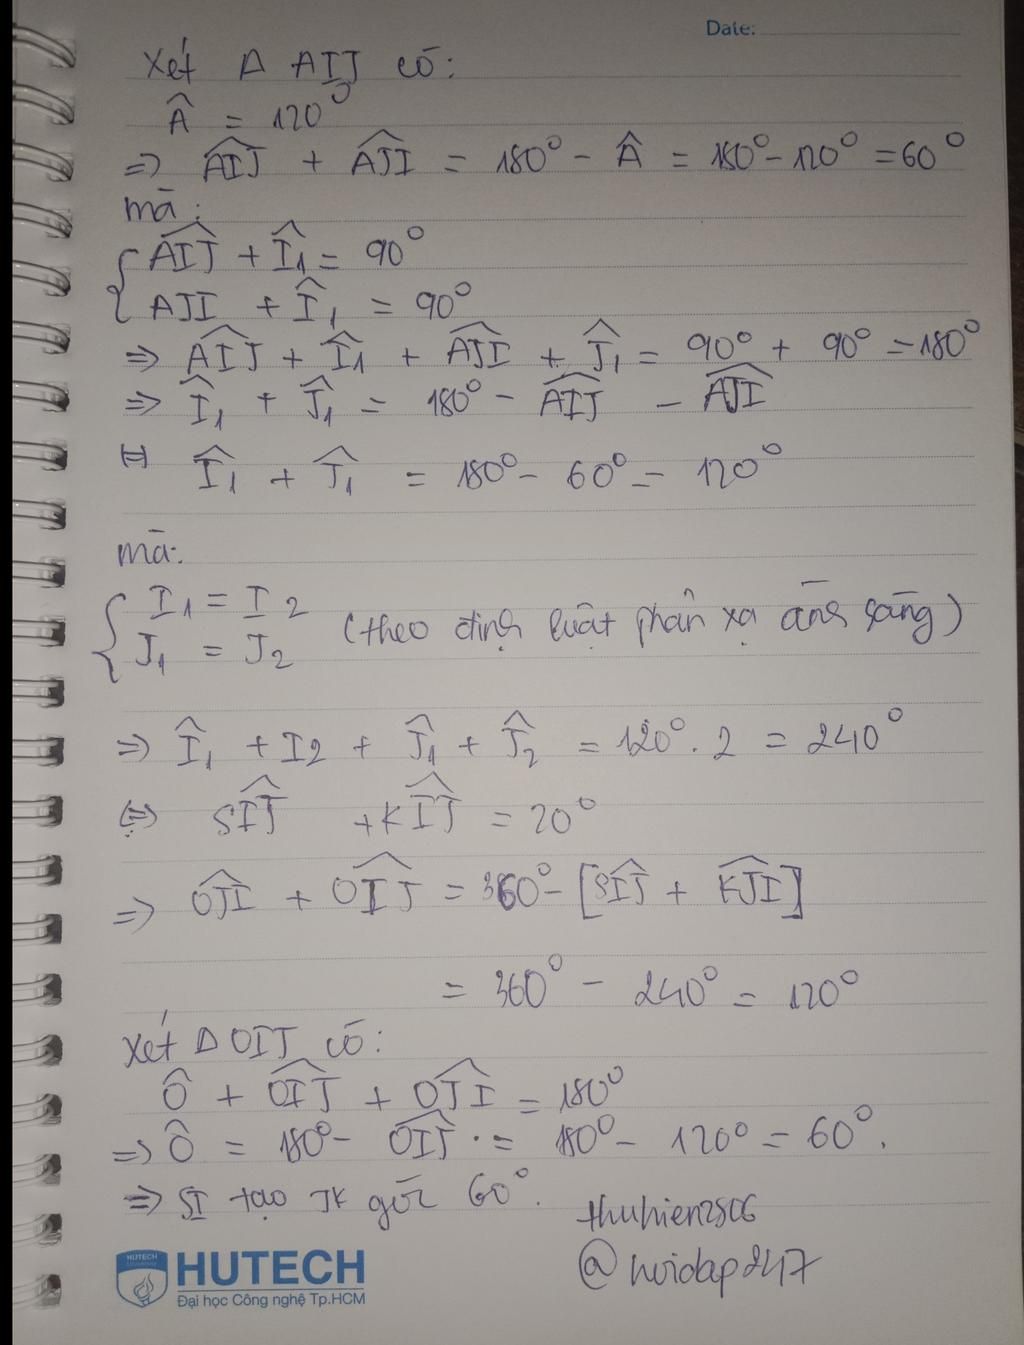 Date:
Xét Δ AIJ có:
Â = 120°
=> AIJ + AJI = 180° - Â = 180° - 120° = 60°
mà:
{ AIJ + Î1 = 90°
AJI + Î1 = 90°
=> AIJ + Î1 + AJI + Ĵ1 = 90° + 90° = 180°
=> Î1 + Ĵ1 = 180° - AIJ - AJI
(=) Î1 + Ĵ1 = 180° - 60° = 120°
mà:
{ I1 = I2
J1 = J2 (theo định luật phản xạ ánh sáng)
=> Î1 + I2 + Ĵ1 + Ĵ2 = 120° . 2 = 240°
(=) SIJ + KIJ = 20°
=> OJI + OIJ = 360° - [SIJ + KJI]
= 360° - 240° = 120°
Xét Δ OIJ có:
Ô + OIJ + OJI = 180°
=> Ô = 180° - OIJ . = 180° - 120° = 60°.
=> SI tạo JK góc 60°.
thuhien2806
@hoidap247
HUTECH
HUTECH
Đại học Công nghệ Tp.HCM